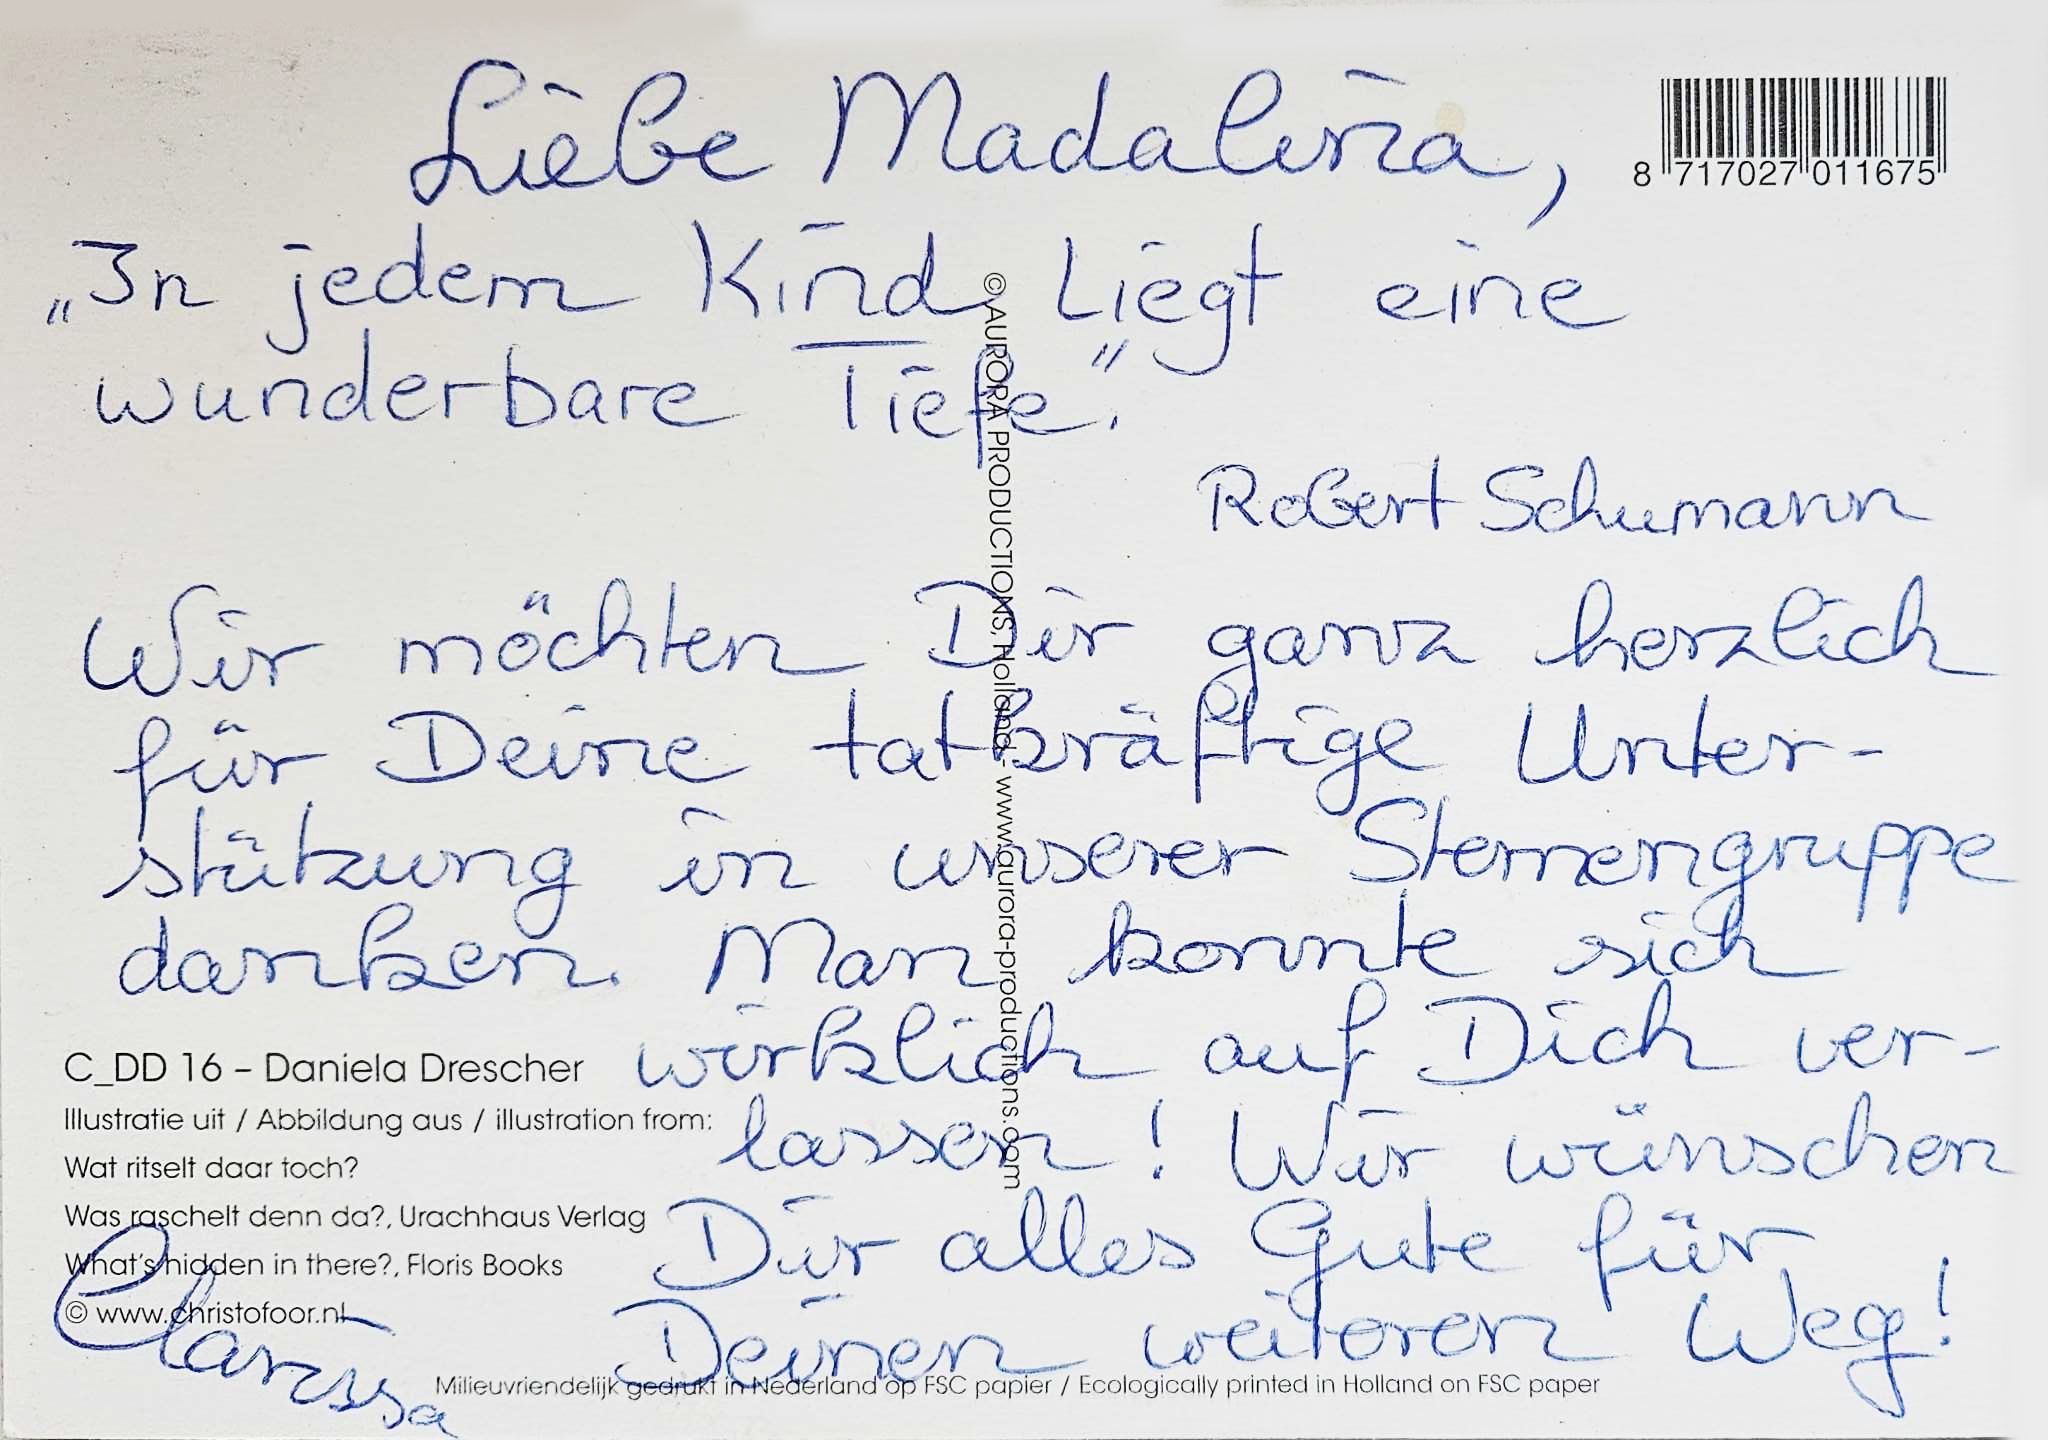 Liebe Madalina,
8 717027 011675
„In jedem Kind liegt eine
wunderbare Tiefe."
Robert Schumann
Wir möchten Dir ganz herzlich
für Deine tatkräftige Unter-
stützung in unserer Sternengruppe
danken. Man konnte sich
wirklich auf Dich ver-
lassen! Wir wünschen
Dir alles Gute für
Deinen weiteren Weg!
Clarissa
© AURORA PRODUCTIONS, Holland, www.aurora-productions.com
C_DD 16 – Daniela Drescher
Illustratie uit / Abbildung aus / illustration from:
Wat ritselt daar toch?
Was raschelt denn da?, Urachhaus Verlag
What's hidden in there?, Floris Books
© www.christofoor.nl
Milieuvriendelijk gedrukt in Nederland op FSC papier / Ecologically printed in Holland on FSC paper